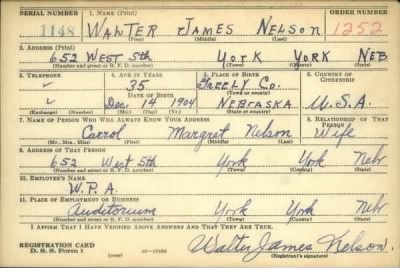 SERIAL NUMBER 1. NAME (Print) ORDER NUMBER
1148 WALTER JAMES NELSON 1252
(First) (Middle) (Last)
2. ADDRESS (Print)
652 WEST 5th YORK YORK NEB
(Number and street or R. F. D. number) (Town) (County) (State)
3. TELEPHONE 4. AGE IN YEARS 5. PLACE OF BIRTH 6. COUNTRY OF CITIZENSHIP
35 GREELY Co.
DATE OF BIRTH (Town or county)
Dec. 14 1904 NEBRASKA U.S.A.
(Exchange) (Number) (Mo.) (Day) (Yr.) (State or country)
7. NAME OF PERSON WHO WILL ALWAYS KNOW YOUR ADDRESS 8. RELATIONSHIP OF THAT PERSON
Carrol Margret Nelson Wife
(Mr., Mrs., Miss) (First) (Middle) (Last)
9. ADDRESS OF THAT PERSON
652 West 5th York York Nebr
(Number and street or R. F. D. number) (Town) (County) (State)
10. EMPLOYER'S NAME
W.P.A.
11. PLACE OF EMPLOYMENT OR BUSINESS
Auditorium York York Nebr
(Number and street or R. F. D. number) (Town) (County) (State)
I AFFIRM THAT I HAVE VERIFIED ABOVE ANSWERS AND THAT THEY ARE TRUE.
REGISTRATION CARD
D. S. S. Form 1 (over) Walter James Nelson.
(Registrant's signature)